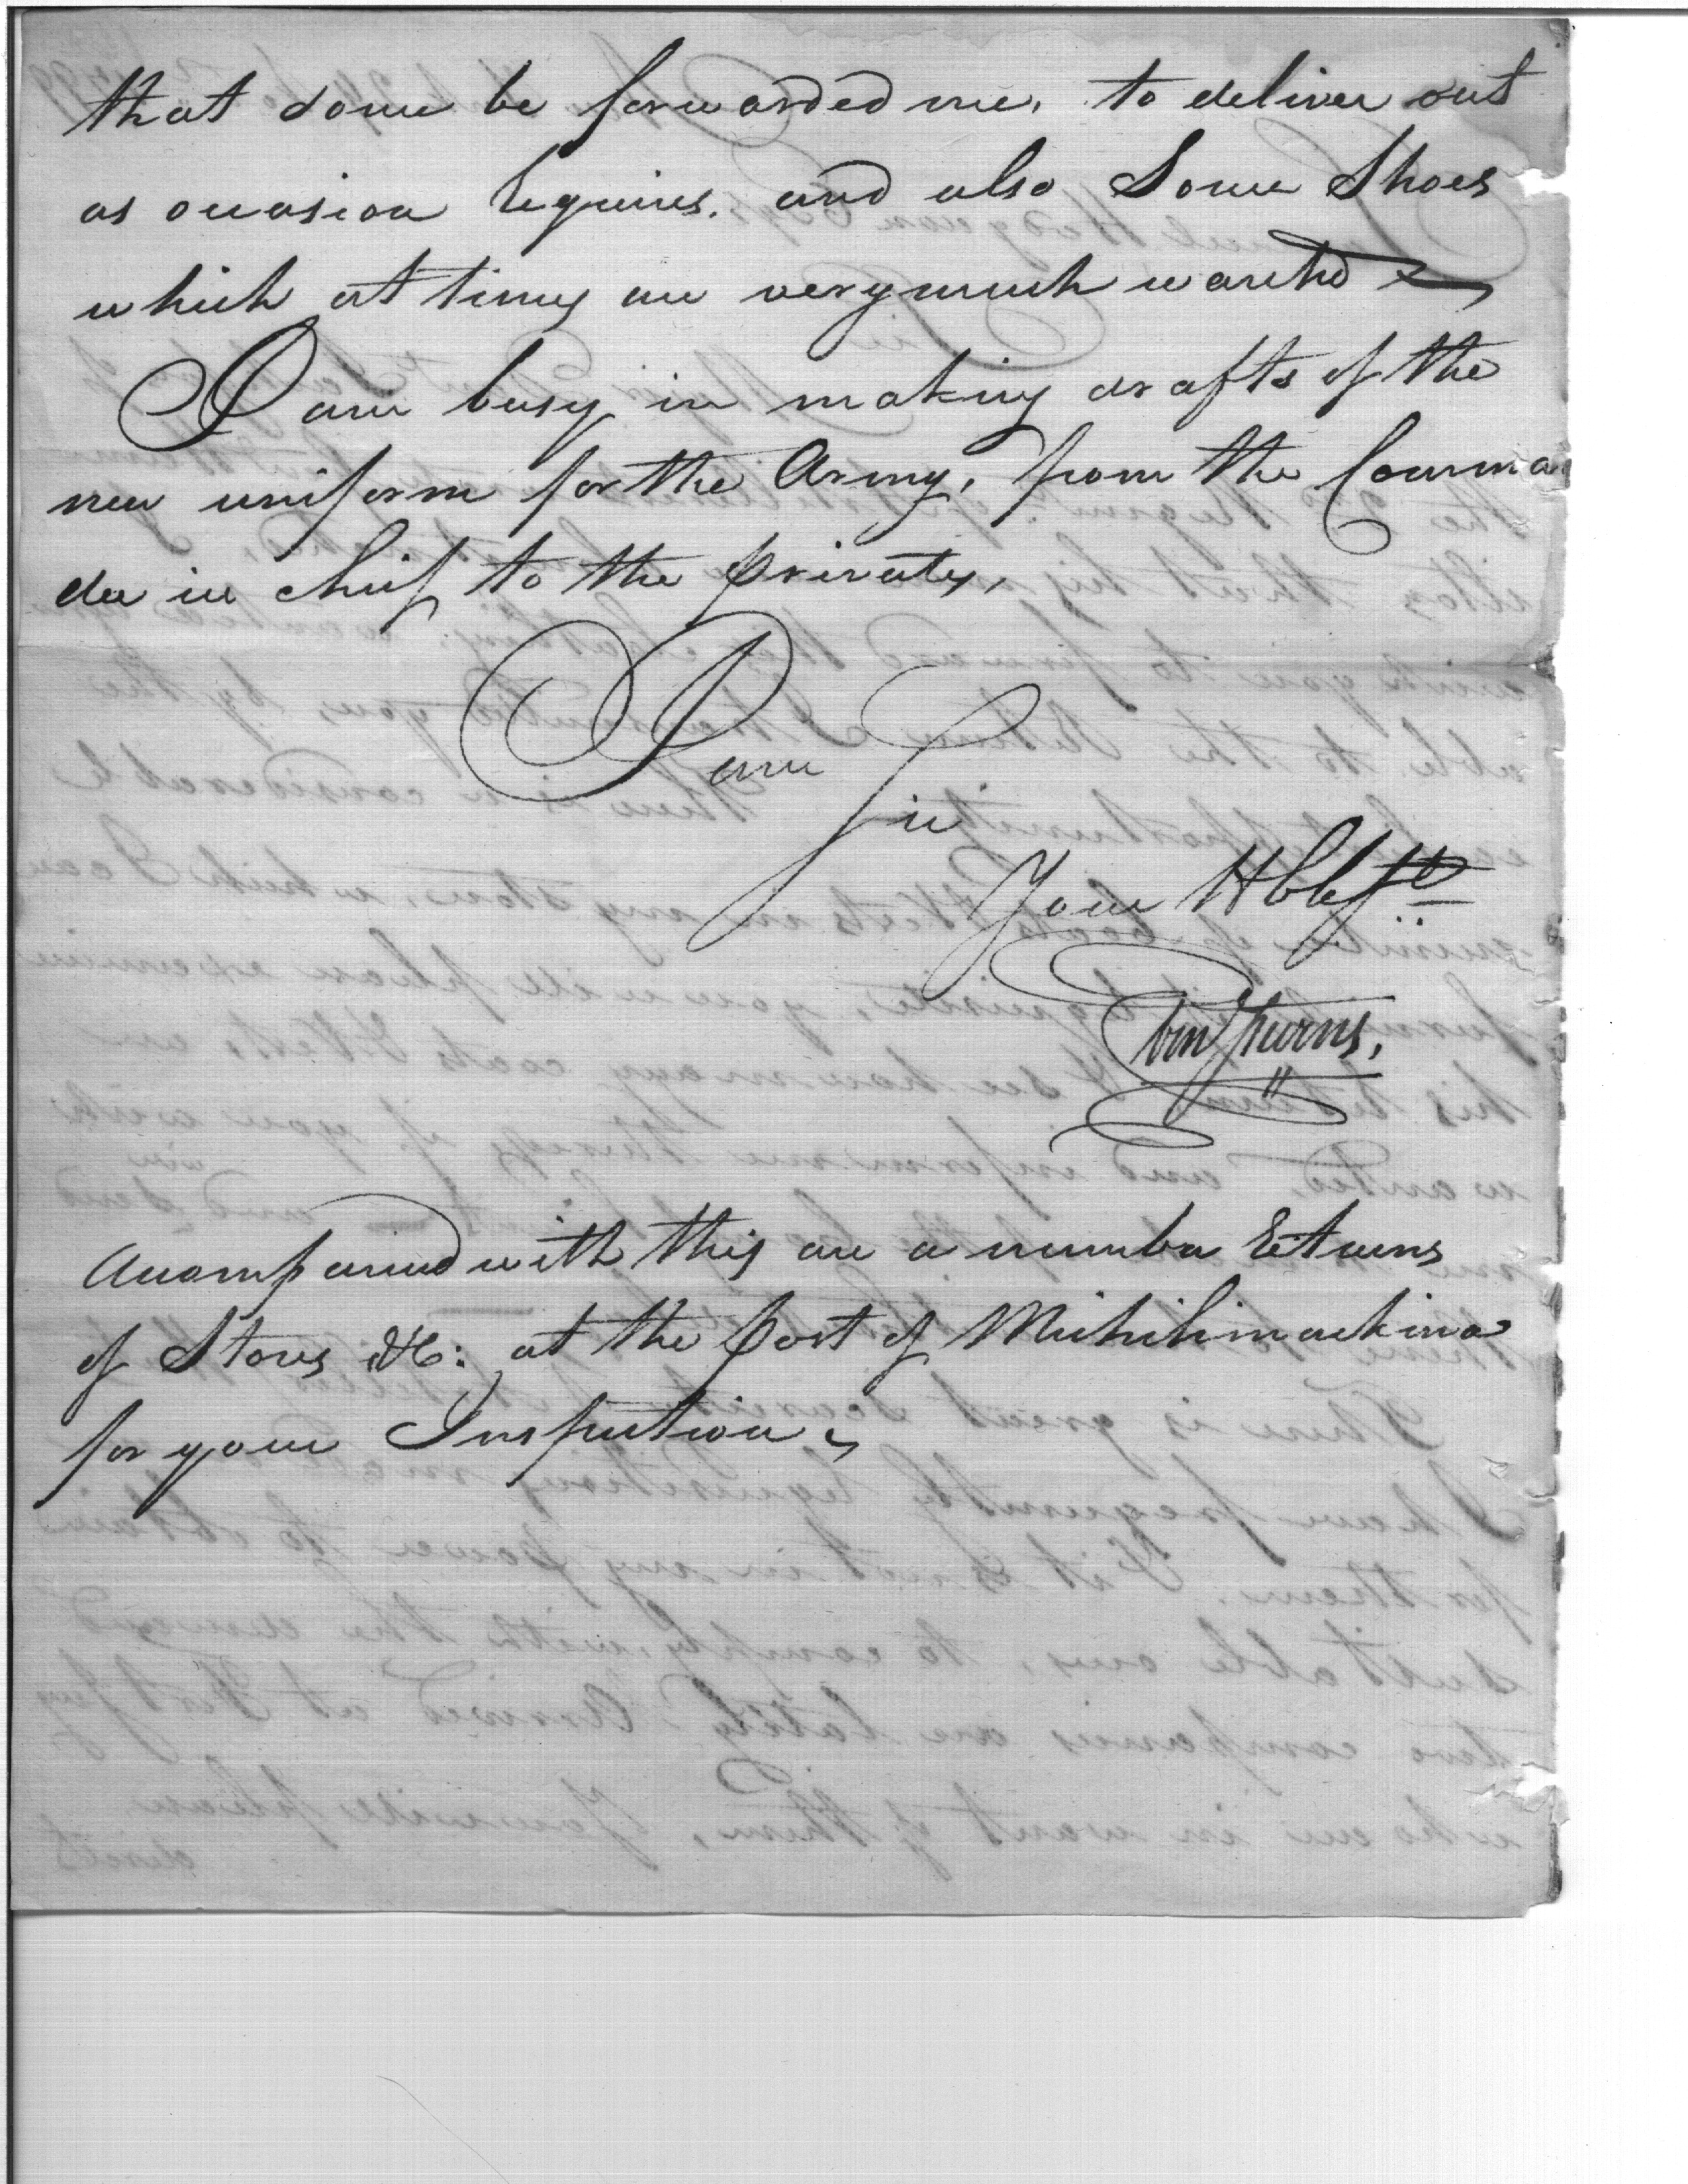 that some be forwarded me, to deliver out
as occasion requires. and also Some Shoes
which at times are very much wanted
I am busy in making drafts of the
new uniform for the Army, from the Comman
der in chief to the privates,
I am
Sir
Your Hble St
Accompanied with this are a number Returns
of Stores &c: at the post of Michilimackina
for your Inspection,